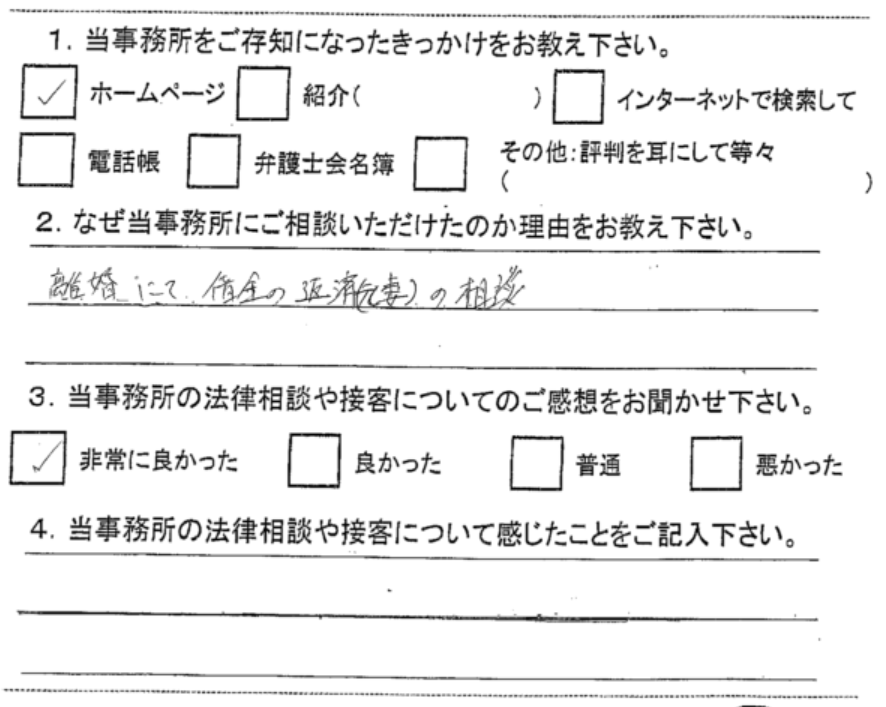 1. 当事務所をご存知になったきっかけをお教え下さい。
✓ ホームページ □ 紹介( ) □ インターネットで検索して
□ 電話帳 □ 弁護士会名簿 □ その他:評判を耳にして等々
( )
2. なぜ当事務所にご相談いただけたのか理由をお教え下さい。
離婚にて、借金の返済(元妻)の相談
3. 当事務所の法律相談や接客についてのご感想をお聞かせ下さい。
✓ 非常に良かった □ 良かった □ 普通 □ 悪かった
4. 当事務所の法律相談や接客について感じたことをご記入下さい。